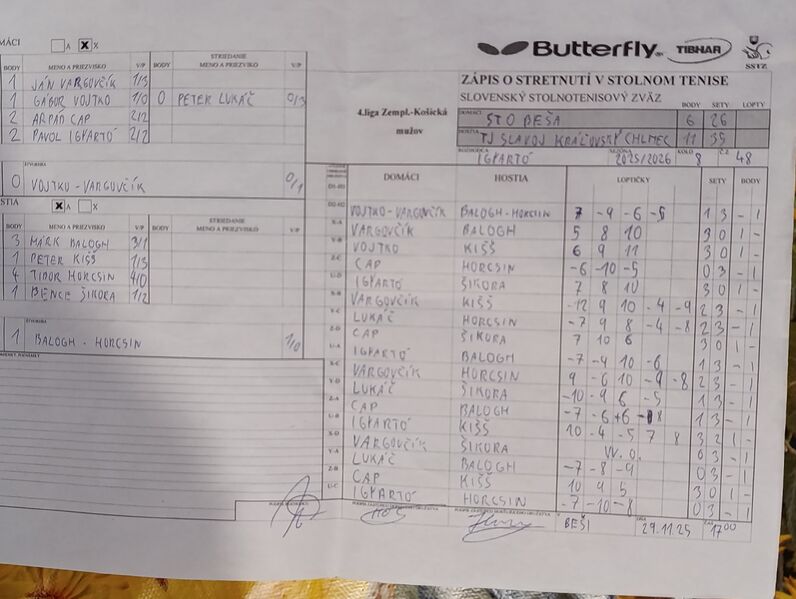 MÁCI A X X
BODY MENO A PRIEZVISKO V/P BODY STRIEDANIE MENO A PRIEZVISKO V/P
1 JÁN VARGOVČÍK 1/3
1 GÁBOR VOJTKO 1/0 0 PETER LUKÁČ 0/3
2 ARPÁD CAP 2/2
2 PAVOL IGPARTÓ 2/2
ŠTVORHRA
0 VOJTKO - VARGOVČÍK 0/1
STIA X X
BODY MENO A PRIEZVISKO V/P STRIEDANIE MENO A PRIEZVISKO V/P
3 MÁRK BALOGH 3/1
1 PETER KIŠŠ 1/3
4 TIBOR HORCSIN 4/0
1 BENCE ŠIKORA 1/2
ŠTVORHRA
1 BALOGH - HORCSIN 1/0
Butterfly TIBHAR SSTZ
ZÁPIS O STRETNUTÍ V STOLNOM TENISE
SLOVENSKÝ STOLNOTENISOVÝ ZVÄZ BODY SETY LOPTY
4.liga Zempl.-Košická mužov
DOMÁCI STO BEŠA 6 26
HOSTIA TJ SLAVOJ KRÁĽOVSKÝ CHLMEC 11 35
ROZHODCA IGPARTÓ SEZÓNA 2025/2026 KOLO 8 Č.Z. 48
DOMÁCI HOSTIA LOPTIČKY SETY BODY
VOJTKO - VARGOVČÍK BALOGH - HORCSIN 7 -9 -6 -5 1 3 - 1
VARGOVČÍK BALOGH 5 8 10 3 0 1 -
VOJTKO KIŠŠ 6 9 11 3 0 1 -
CAP HORCSIN -6 -10 -5 0 3 - 1
IGPARTÓ ŠIKORA 7 8 10 3 0 1 -
VARGOVČÍK KIŠŠ -12 9 10 -4 -9 2 3 - 1
LUKÁČ HORCSIN -7 9 8 -4 -8 2 3 - 1
CAP ŠIKORA 7 10 6 3 0 1 -
IGPARTÓ BALOGH -7 -4 10 -6 1 3 - 1
VARGOVČÍK HORCSIN 9 -6 10 -9 -8 2 3 - 1
LUKÁČ ŠIKORA -10 -9 6 -5 1 3 - 1
CAP BALOGH -7 -6 1 3 - 1
IGPARTÓ KIŠŠ 10 -4 -5 7 8 3 2 1 -
VARGOVČÍK ŠIKORA W.O. 0 3 - 1
LUKÁČ BALOGH -7 -8 -9 0 3 - 1
CAP KIŠŠ 10 9 5 3 0 1
IGPARTÓ HORCSIN -7 -10 -8 0 3 - 1
BEŠI DŇA 29.11.25 ČAS 17 00